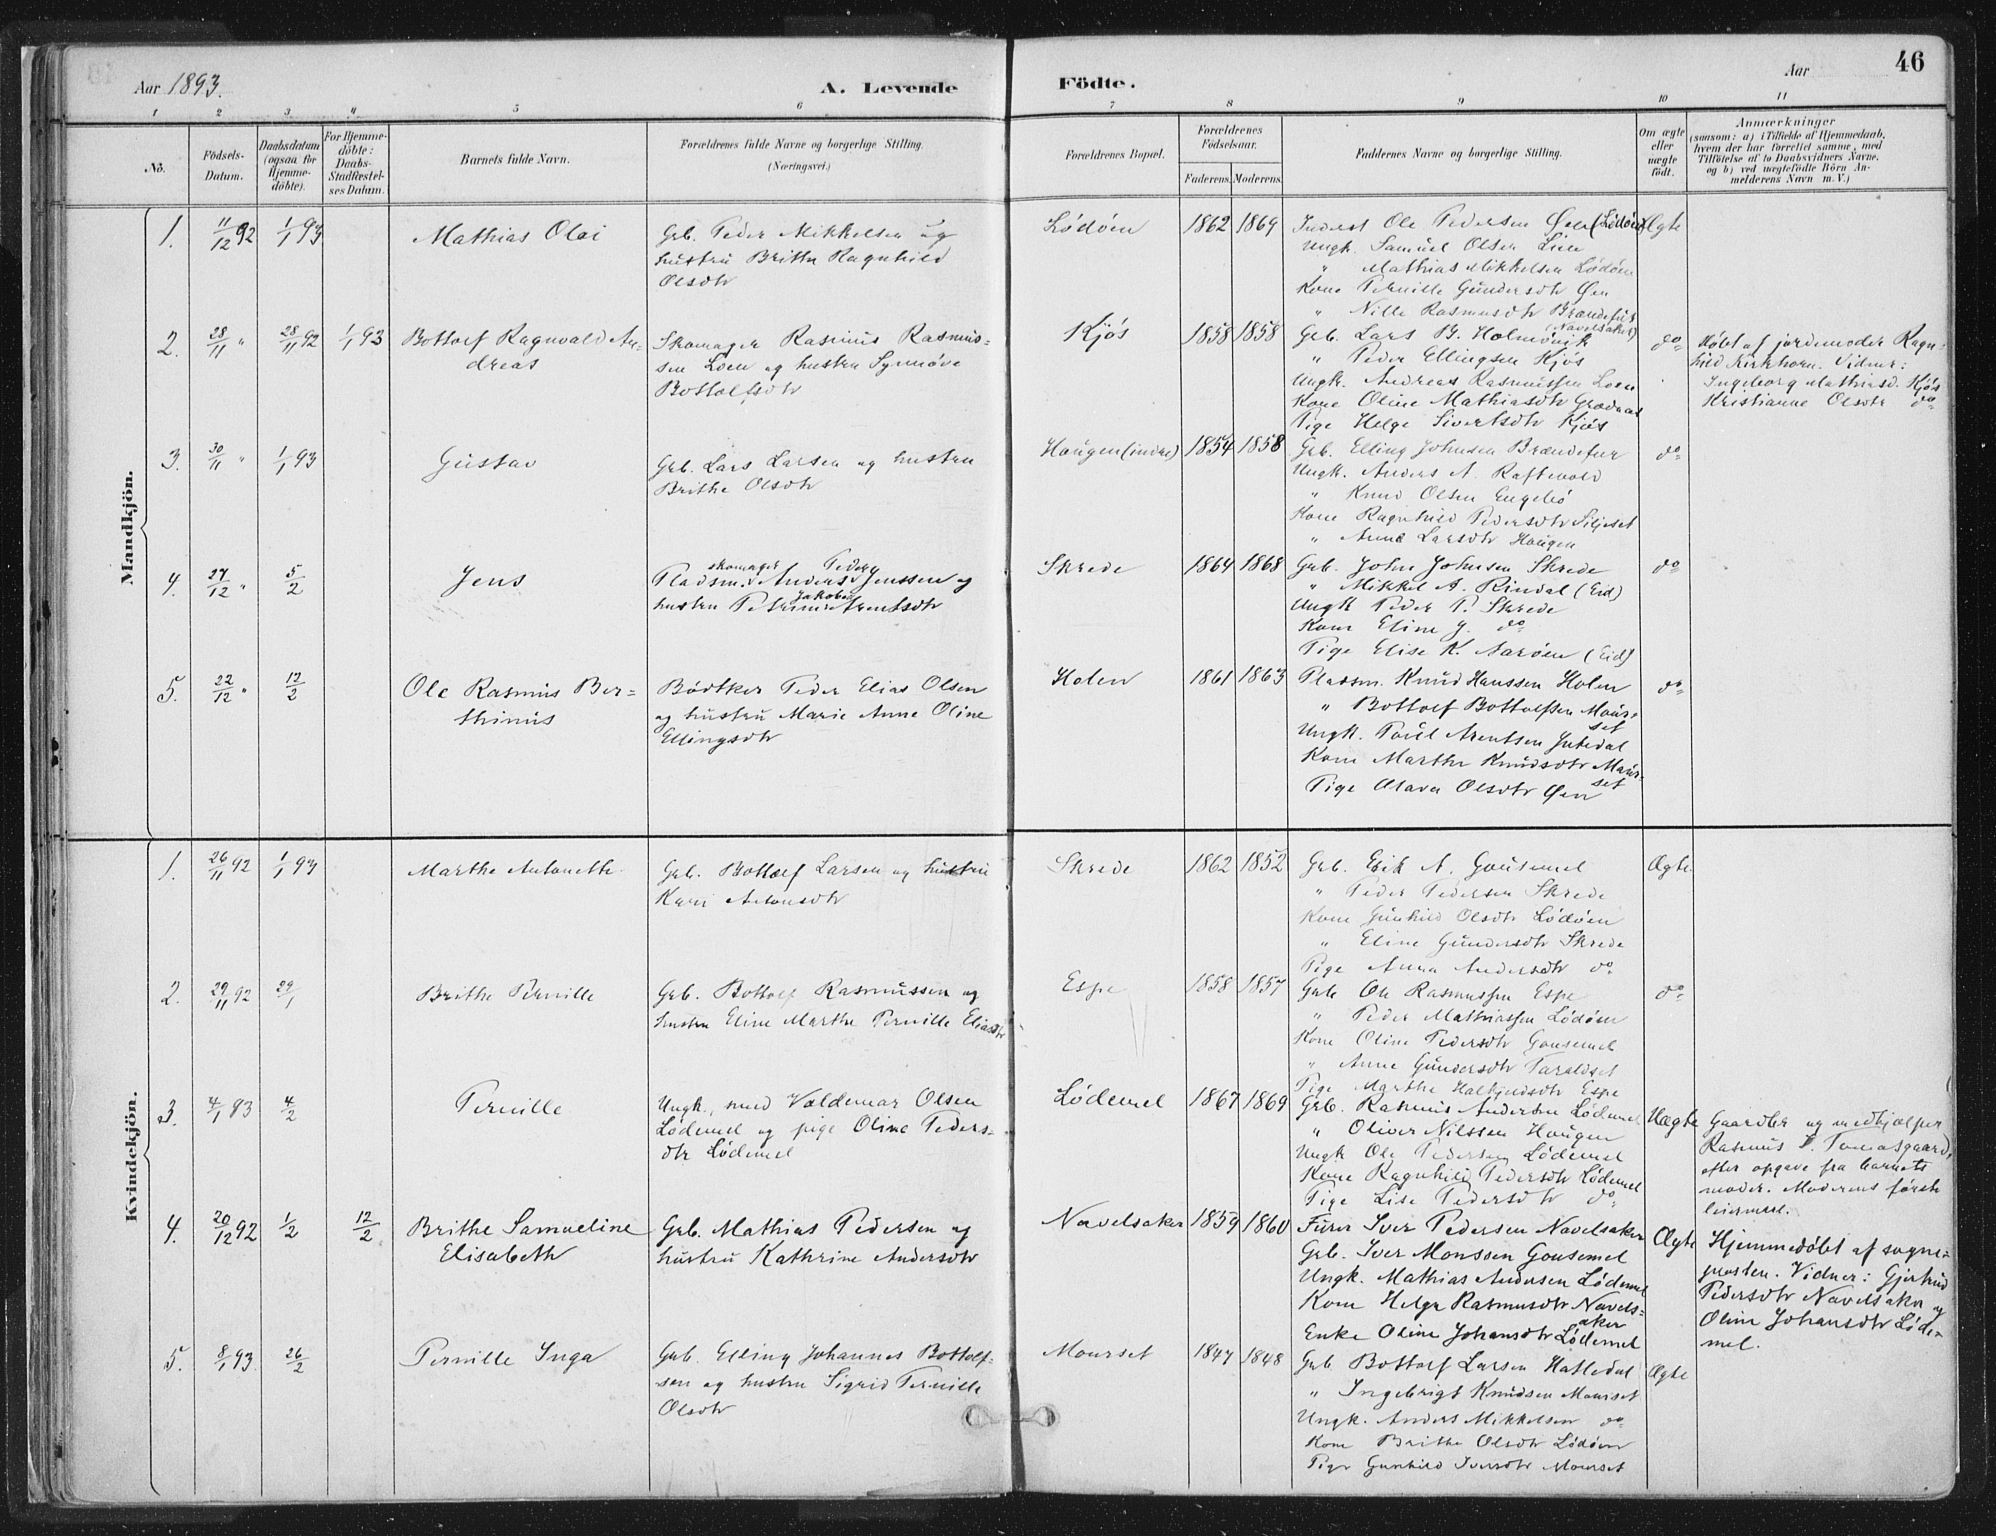 46
Aar 1893.
A. Levende
Födte.
Aar
1 2 3 4 5 6 7 8 9 10 11
No.
Födsels-Datum.
Daabsdatum (ogsaa for Hjemme-döbte).
For Hjemme-döbte: Daabs-Stadfæstel-ses Datum.
Barnets fulde Navn.
Forældrenes fulde Navne og borgerlige Stilling.
(Næringsvei.)
Forældrenes Bopæl.
Forældrenes Födselsaar.
Faderens. Moderens.
Faddernes Navne og borgerlige Stilling.
Om ægte eller uægte födt.
Anmærkninger
(saasom: a) i Tilfælde af Hjemmedaab,
hvem der har forrettet samme, med
Tilföielse af to Daabsvidners Navne,
og b) ved uægtefödte Börn An-
melderens Navn m. V.)
Mandkjön.
1. 11/12 92 1/1 93
Mathias Olai
Grb. Peder Mikkelsen og
hustru Brithe Ragnhild
Olsdtr
Lödöen
1862 1869
Inderst Ole Pedersen Øen (Lödöen)
Ungk. Samuel Olsen Lien
" Mathias Mikkelsen Lödöen
Kone Pernille Gundersdtr Øen
" Nille Rasmusdtr Brændefur
Ægte
2. 28/11 " 28/11 92 1/1 93
Bottolf Ragnvald An-
dreas
Skomager Rasmus Rasmus-
sen Loen og hustru Synnöve
Bottolfsdtr
Kjøs
1858 1858
(Navelsaker)
Grb. Lars B. Holmövik
" Peder Ellingsen Kjøs
Ungk. Andreas Rasmussen Loen
Kone Oline Mathiasdtr Grodaas
Pige Helge Sivertsdtr Kjøs
do
Døbt af jordemoder Ragn-
hild Kirkhorn. Vidner:
Ingeborg Mathiasd. Kjøs
Kristianne Olsdtr do
3. 30/11 " 1/1 93
Gustav
Grb. Lars Larsen og hustru
Brithe Olsdtr
Haugen (indre)
1854 1858
Grb. Elling Johnsen Brændefur
Ungk. Anders A. Raftevold
" Knud Olsen Engebö
Kone Ragnhild Pedersdtr Siljeset
" Anne Larsdtr Haugen
do
4. 27/12 " 5/2
Jens
skomager Peder
Pladsm. Anders Jenssen og
Jakobe
hustru Petrine Arentsdtr
Skrede
1864 1868
Grb. John Johnsen Skrede
" Mikkel A. Rindal (Eid)
Ungk Peder P. Skrede
Kone Eline J. do
Pige Elise K. Aaröen (Eid)
do
5. 22/12 " 12/2
Ole Rasmus Ber-
thinus
Bödtker Peder Elias Olsen
og hustru Marie Anne Oline
Ellingsdtr
Holen
1861 1863
Pladsm. Knud Hanssen Holen
" Bottolf Bottolfsen Maur-
set
Ungk. Poul Arentsen Indredal
Kone Marthe Knudsdtr Maur-
set
Pige Olava Olsdtr Øen
do
Kvindekjön.
1. 26/11 92 1/1 93
Marthe Antonette
Grb. Bottolf Larsen og hustru
Kari Antonsdtr
Skrede
1862 1852
Grb. Erik A. Gausemel
" Peder Pedersen Skrede
Kone Gunhild Olsdtr Lödöen
" Eline Gundersdtr Skrede
Pige Anna Andersdtr do
Ægte
2. 29/11 92 29/1
Brithe Pernille
Grb. Bottolf Rasmussen og
hustru Eline Marthe Pernille Eliasdtr
Espe
1858 1857
Grb Ole Rasmussen Espe
" Peder Mathiassen Lödöen
Kone Oline Pedersdtr Gausemel
" Anne Gundersdtr Taraldset
Pige Marthe Halkjeldsdtr Espe
do
3. 4/1 93 4/2
Pernille
Ungk. mand Valdemar Olsen
Lödemel og pige Oline Peders-
dtr Lödemel
Lödemel
1867 1869
Grb. Rasmus Andersen Lödemel
" Oliver Nilssen Haugen
Ungk Ole Pedersen Lödemel
Kone Ragnhild Pedersdtr Lödemel
Pige Lise Pedersdtr do
Uægte
Gaardbr og medhjælper
Rasmus P. Tomasgaard,
efter opgave fra barnets
moder. Moderens förste
leiermaal.
4. 20/12 92 1/2 12/2
Brithe Samueline
Elisabeth
Grb. Mathias Pedersen og
hustru Kathrine Andersdtr
Navelsaker
1859 1860
Furer Iver Pedersen Navelsaker
Grb. Iver Monssen Gausemel
Ungk. Mathias Andersen Lödemel
Kone Helge Rasmusdtr Navels-
aker
Enke Oline Johansdtr Lödemel
Ægte
Hjemmedöbt af sogne-
presten. Vidner: Gjertrud
Pedersdtr Navelsaker og
Oline Johansdtr Löde-
mel.
5. 8/1 93. 26/2
Pernille Inga
Grb. Elling Johannes Bottolf-
sen og hustru Sigrid Pernille
Olsdtr
Maurset
1847 1848
Grb Bottolf Larsen Hatledal
" Ingebrigt Knudsen Maurset
Ungk. Anders Mikkelsen do
Kone Brithe Olsdtr Lödöen
Pige Gunhild Iversdtr Maurset
Ægte